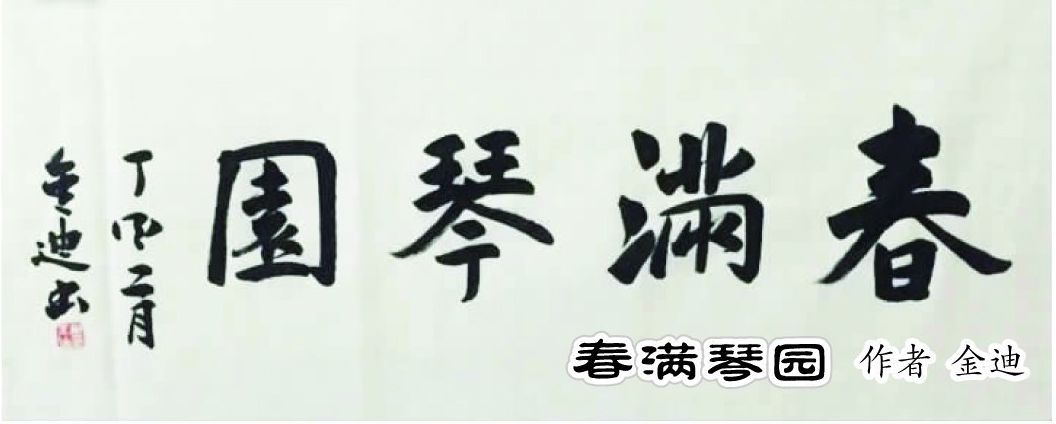 春滿琴園
丁酉二月
金迪书
春满琴园 作者 金迪